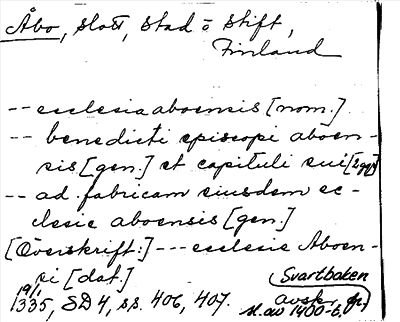 Åbo, slott, stad o stift,
Finland
-- ecclesia aboensis [nom.]
-- benedicti episcopi aboen-
sis [gen.] et capituli sui [2 ggr]
-- ad fabricam eiusdem ec-
clesie aboensis [gen.]
[Överskrift:] --- ecclesie Aboen-
si [dat.]
19/1 1335, SD 4, ss. 406, 407.
Svartboken
avskr. fr.
sl. av 1400-t.